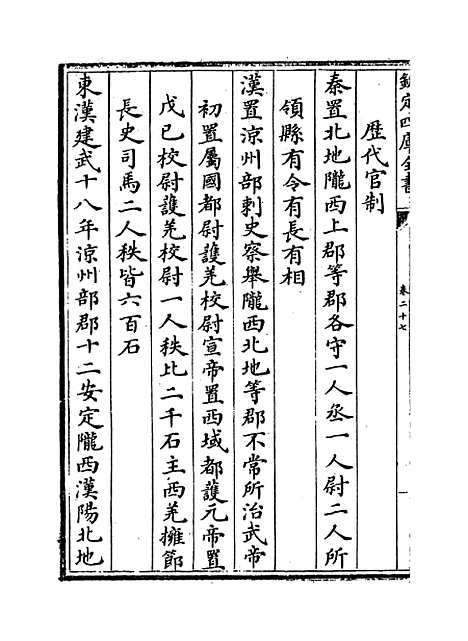 欽定四庫全書
卷二十七
歴代官制
秦置北地隴西上郡等郡各守一人丞一人尉二人所
領縣有令有長有相
漢置涼州部刺史察舉隴西北地等郡不常所治武帝
初置屬國都尉護羌校尉宣帝置西域都護元帝置
戊已校尉護羌校尉一人秩比二千石主西羌擁節
長史司馬二人秩皆六百石
東漢建武十八年涼州部郡十二安定隴西漢陽北地